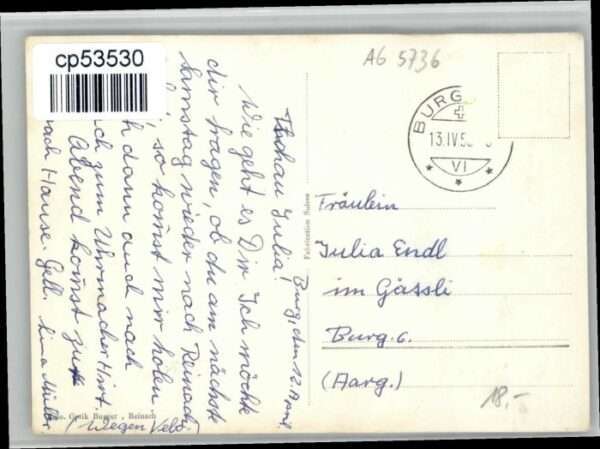 cp53530
AG 5736
BURG
13.IV.5
VI
Burg, den 12. April.
Tschau Julia!
Wie geht es Dir. Ich möchte
dir fragen, ob du am nächste
Samstag wieder nach Reinach
, so komst mir holen
dann auch nach
zum Uhrmacher Hirt.
Abend komst zu
nach Hause. Gell. Lina Müller
(Wegen Velo.)
Fräulein
Julia Endl
im Gässli
Burg. 6.
(Aarg.)
18.-
Fabrication Suisse
Optik Burger, Reinach